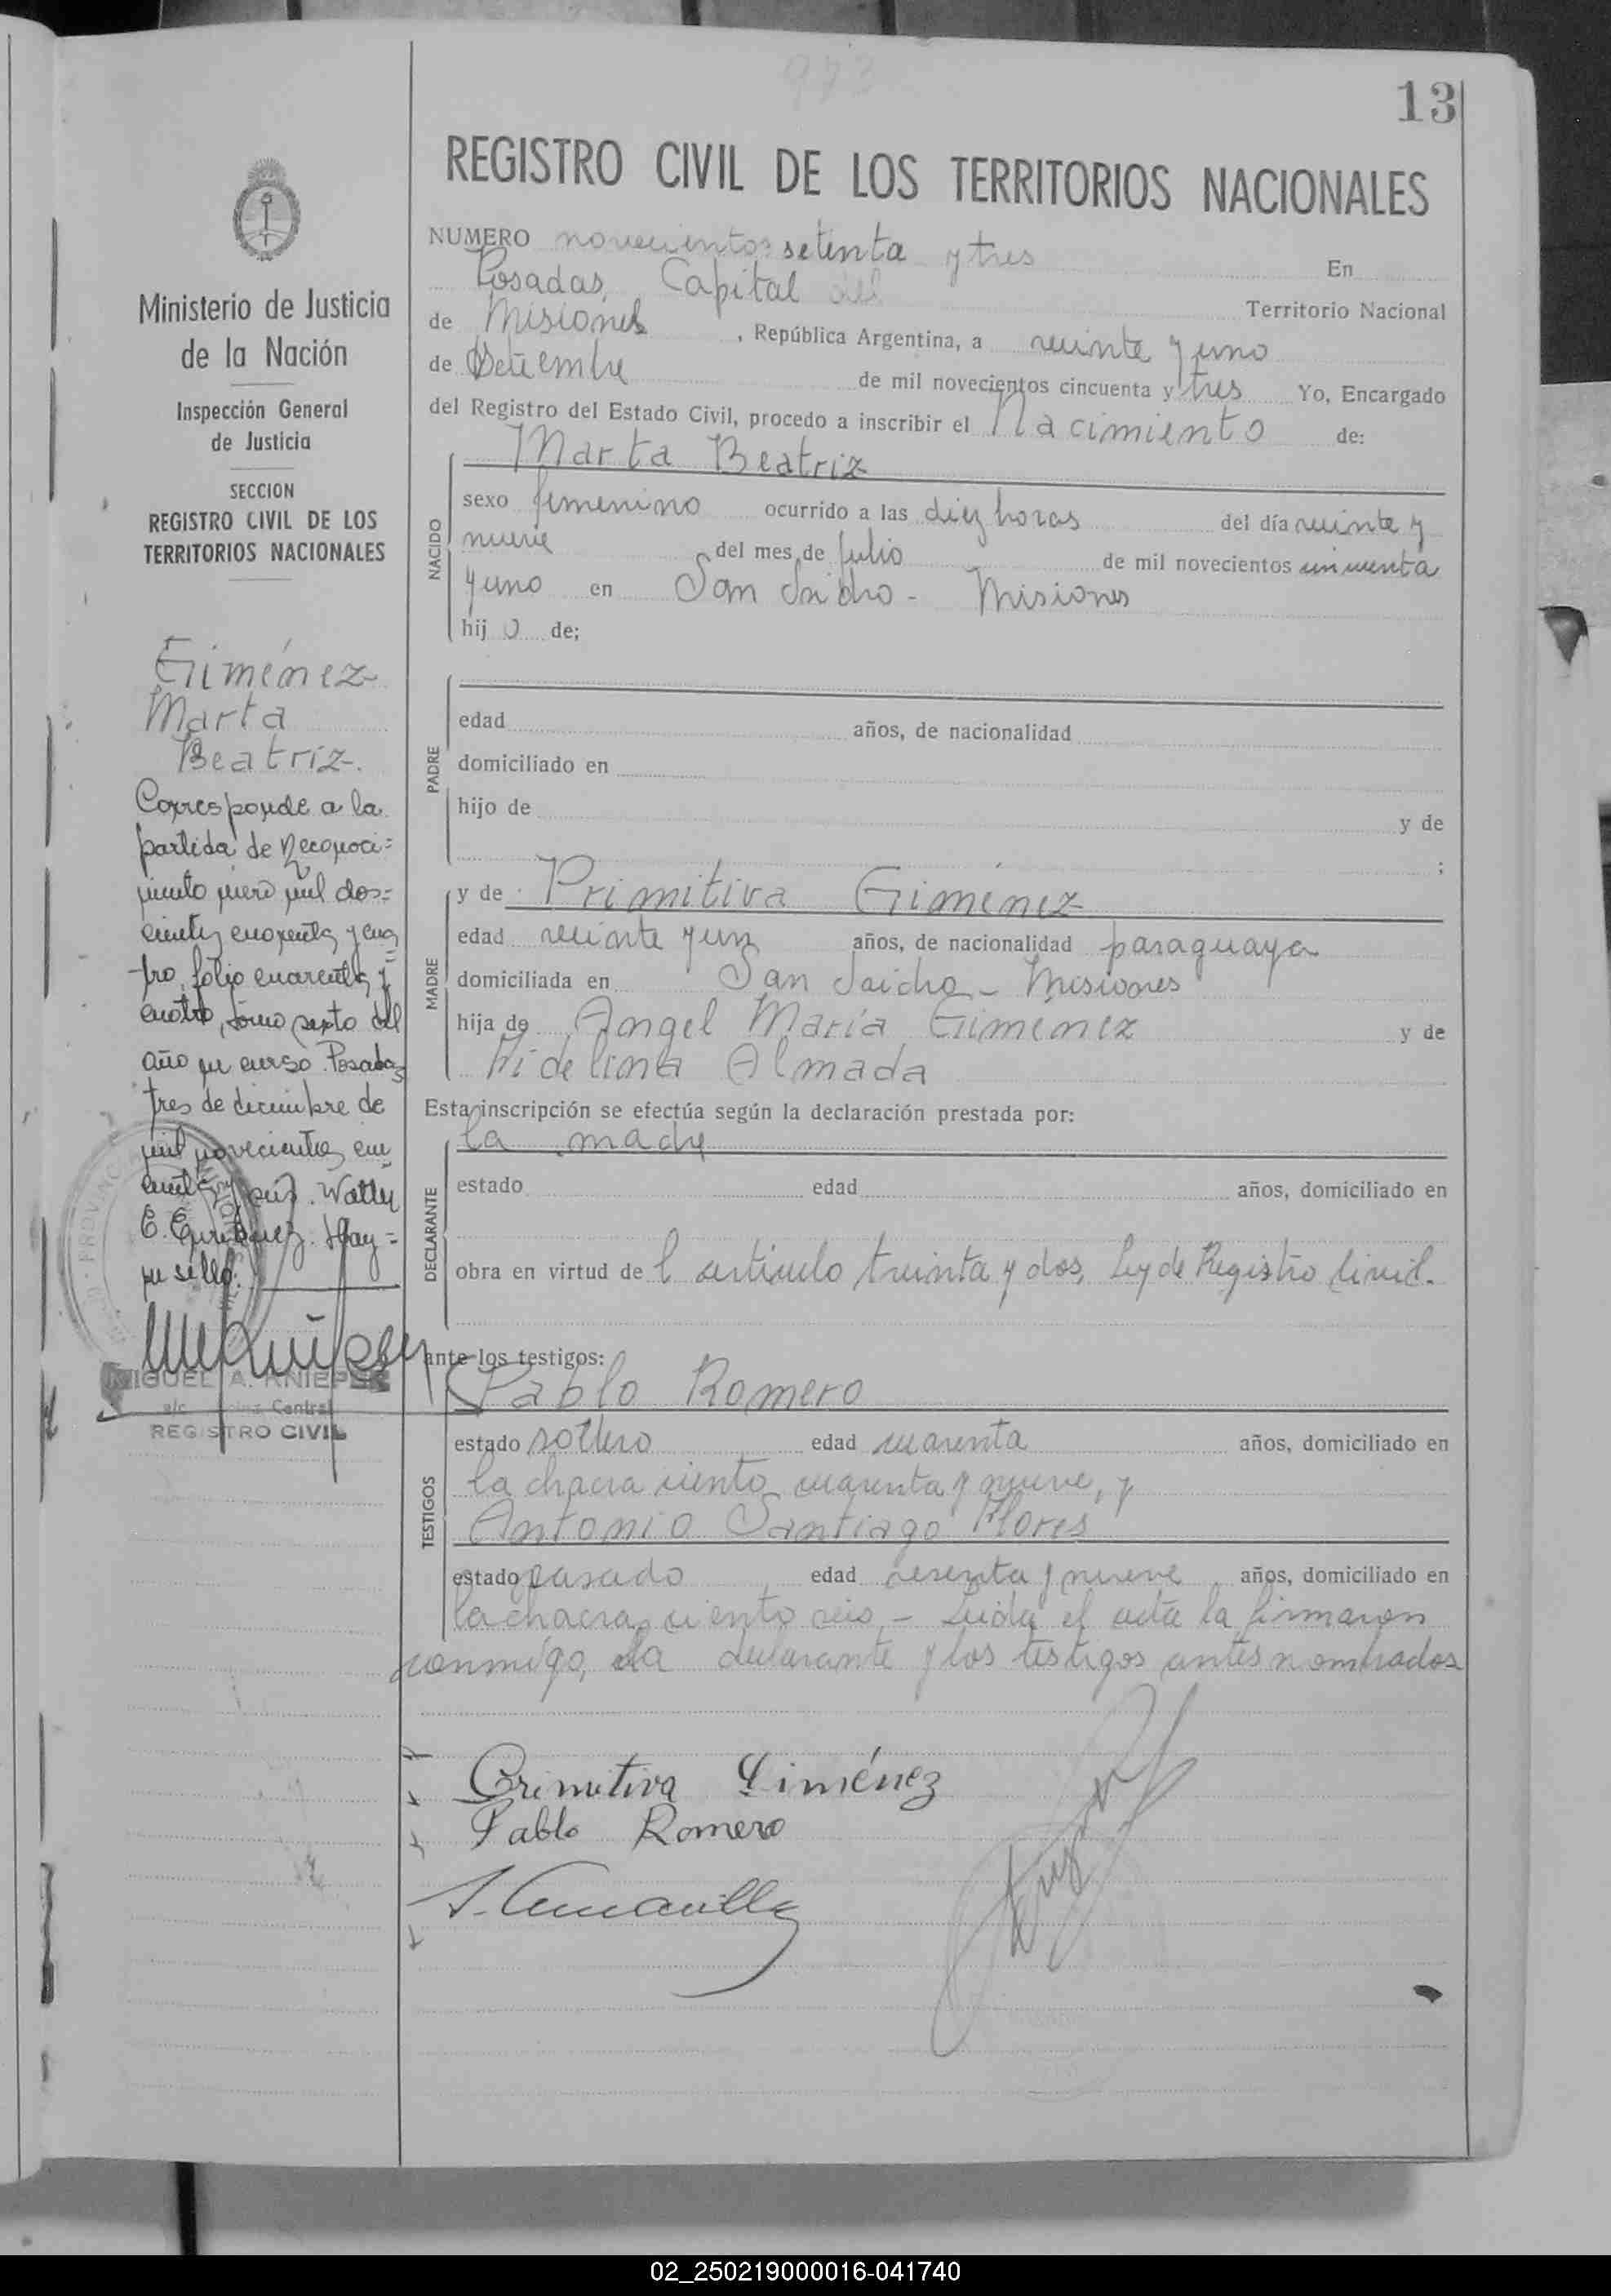 973
13
REGISTRO CIVIL DE LOS TERRITORIOS NACIONALES
NUMERO novecientos setenta y tres En
Posadas, Capital del Territorio Nacional
de Misiones, República Argentina, a veinte y uno
de Setiembre de mil novecientos cincuenta y tres Yo, Encargado
del Registro del Estado Civil, procedo a inscribir el Nacimiento de:
NACIDO
Marta Beatriz
sexo femenino ocurrido a las diez horas del día veinte y
nueve del mes de Julio de mil novecientos cincuenta
y uno en San Isidro - Misiones
hij o de;
PADRE
edad años, de nacionalidad
domiciliado en
hijo de y de
;
MADRE
y de Primitiva Giménez
edad veinte y un años, de nacionalidad paraguaya
domiciliada en San Isidro - Misiones
hija de Angel María Giménez y de
Fidelina Almada
Esta inscripción se efectúa según la declaración prestada por:
DECLARANTE
la madre
estado edad años, domiciliado en
obra en virtud de l artículo treinta y dos, Ley de Registro Civil.
ante los testigos:
TESTIGOS
Pablo Romero
estado soltero edad cuarenta años, domiciliado en
la chacra ciento cuarenta y nueve, y
Antonio Santiago Flores
estado casado, edad sesenta y nueve años, domiciliado en
la chacra ciento seis - Leida el acta la firmaron
conmigo, la declarante y los testigos antes nombrados
Primitiva Giménez
Pablo Romero
Ministerio de Justicia
de la Nación
Inspección General
de Justicia
SECCION
REGISTRO CIVIL DE LOS
TERRITORIOS NACIONALES
Giménez
Marta
Beatriz.
Corresponde a la
partida de Reconoci=
miento mero mil dos=
cientos cuarenta y cua
tro, folio cuarenta y
cuatro, tomo sexto del
año en curso. Posadas
tres de diciembre de
mil novecientos cin
cuenta y seis. Watty
E. Enriquez. Hay=
un sello.
MIGUEL A. KNIEPER
a/c Central
REGISTRO CIVIL
02_250219000016-041740